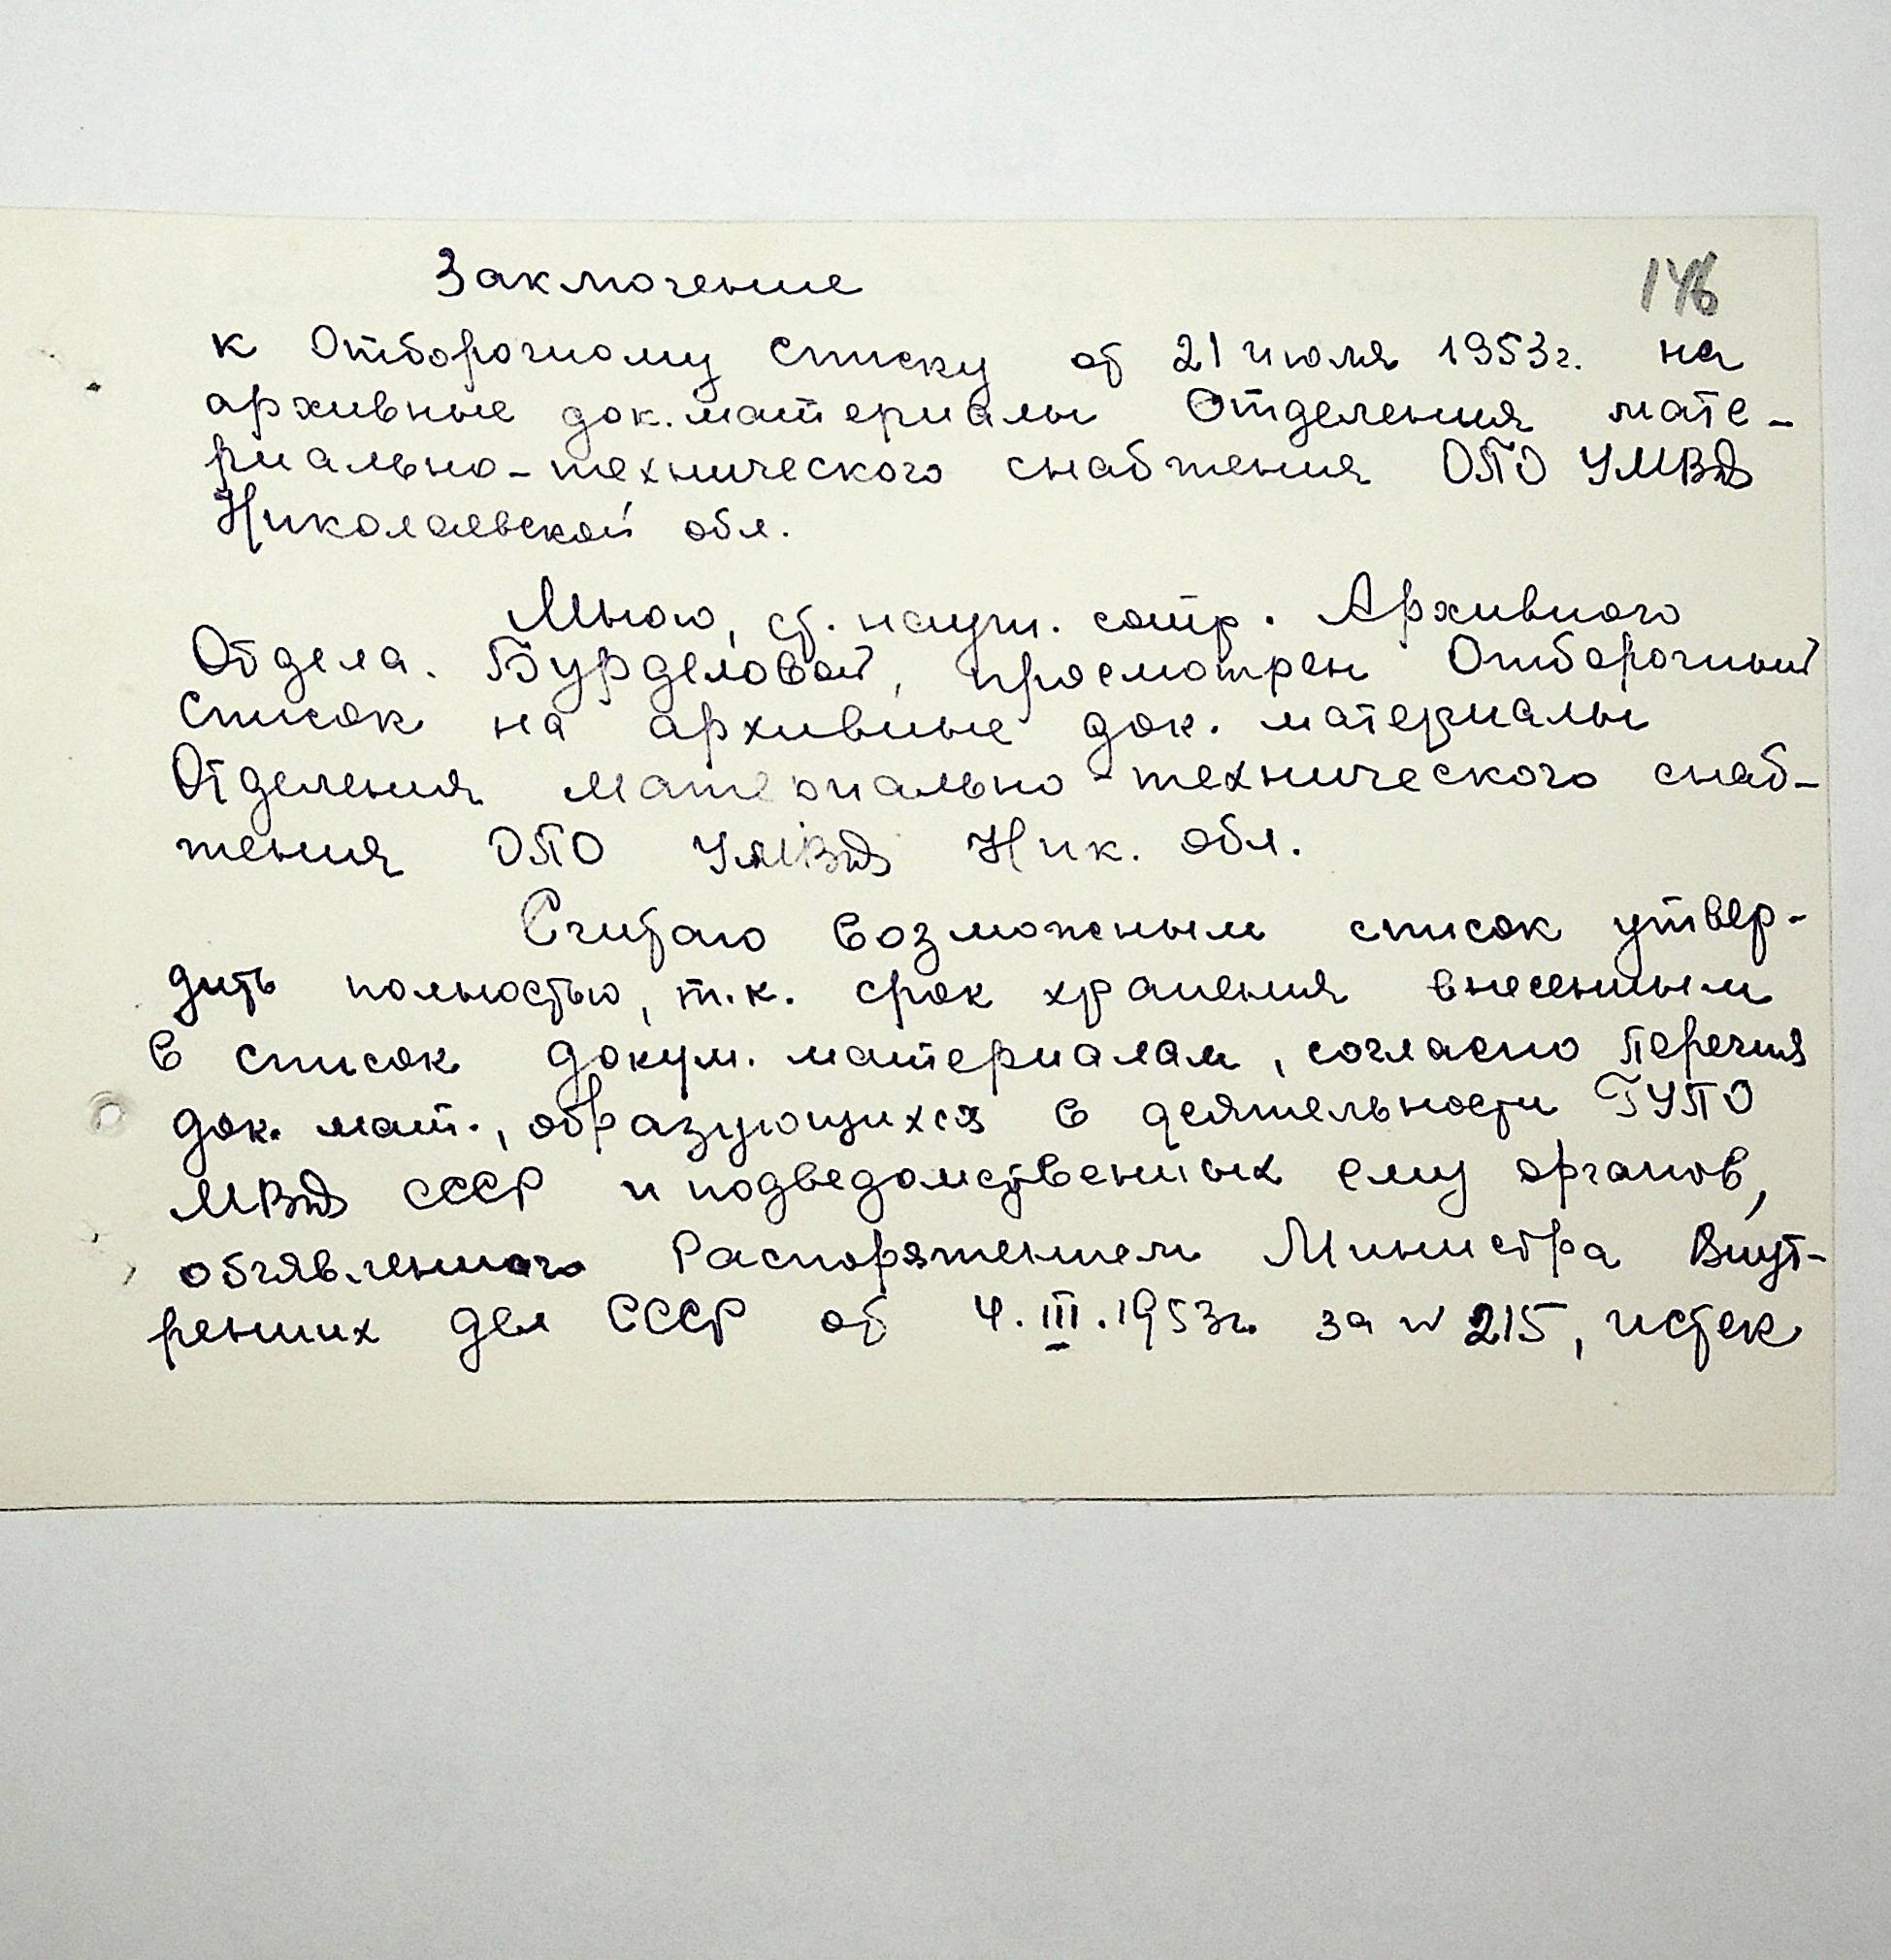 Заключение
146
к Отборочному списку от 21 июля 1953г. на
архивные док. материалы Отделения мате-
риально-технического снабжения ОПО УМВД
Николаевской обл.
Мною, ст. научн. сотр. Архивного
Отдела. Бурделовой, просмотрен Отборочный
список на архивные док. материалы
Отделения материально-технического снаб-
жения ОПО УМВД Ник. обл.
Считаю возможным список утвер-
дить полностью, т.к. срок хранения внесенным
в список докум. материалам, согласно Перечня
док. мат., образующихся в деятельности ГУПО
МВД СССР и подведомственных ему органов,
объявленного Распоряжением Министра Внут-
ренних дел СССР от 4.III.1953г. за № 215, истек